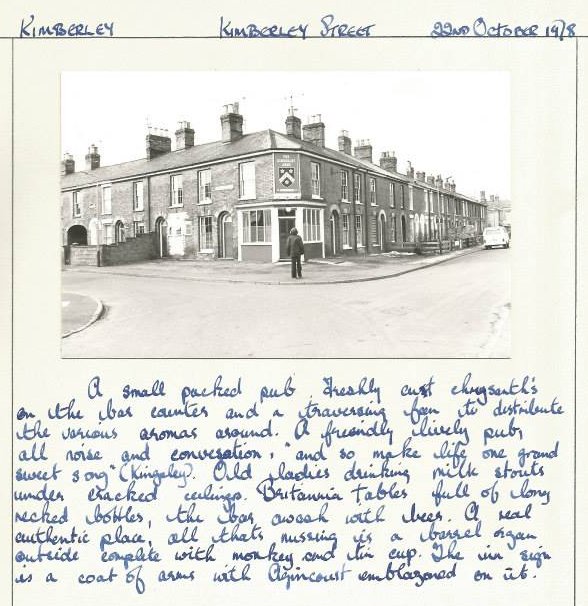 KIMBERLEY KIMBERLEY STREET 22ND OCTOBER 1978
A small packed pub. Freshly cut chrysanth's
on the bar counter and a traversing fan to distribute
the various aromas around. A friendly lively pub,
all noise and conversation, "and so make life one grand
sweet song" (Kingsley). Old ladies drinking milk stouts
under cracked ceilings. Britannia tables full of long
necked bottles, the bar awash with beer. A real
authentic place, all thats missing is a barrel organ
outside complete with monkey and tin cup. The inn sign
is a coat of arms with Agincourt emblazoned on it.